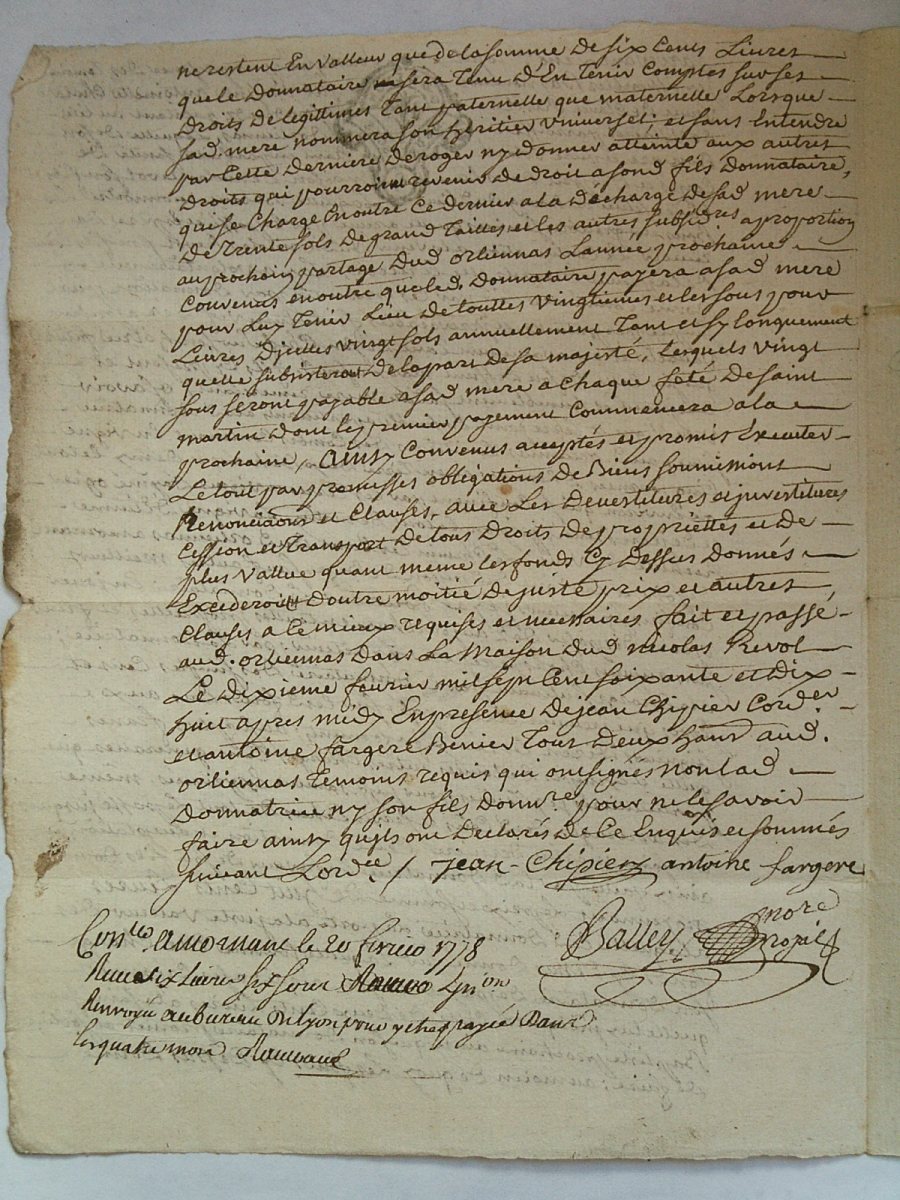 ne restent En valleur que de la somme de six Cents Livres
que le Donnataire sera Tenu D'En Tenir Comptes sur ses
Droits de legittimes Tant paternelle que maternelle Lorsque
sad. mere nommera son heritier universel; et sans Entendre
par Cette Derniere Deroger ny donner atteinte aux autres
Droits qui pourroint revenir de droit a sond fils Donnataire,
qui se Charge En outre Ce dernier a la décharge de sad mere
De Trente sols De grand Tailles et les autres subsides a proportion
au prochein partage Dud orliennas Lannée prochaine
Convenus en outre que led. Donnataire payera a sad mere
pour Luy Tenir Lieu de touttes vingtiemes et les sous pour
Livres D'jcelles vingt sols annuellement Tant et sy longuement
quelle subsisteront De la part de sa majesté, Lesquels vingt
sous seront payable a sad mere a Chaque fête De saint
martin Dont le premier payement Commencera a la
prochaine, Ainsy Convenus acceptés et promis Executer
Le tout par promisses obligations de Biens soumissions
Renonciaons et Clauses, avec Les Devestitures et jnvestitures
Cession et Transport De tous Droits De propriettes et De
plus vallue quant meme les fonds Cy Dessus donnés
Excederoint Doutre moitié de juste prix et autres
Clauses a Le mieux requises et necessaires fait et passé
aud. orliennas Dans La Maison dud nicolas Revol
Le dixieme fevrier mil sept Cent soixante et Dix
huit apres midy En presence De jean Chipier Cord.er
et antoine fargere Benier Tous Deux hants aud.
orliennas Temoins requis qui ont signés non lad
Donnatrice ny son fils donn.re pour ne le savoir
faire ainsy quils ont Declarés De Ce Enquis et sommés
suivant Lord.ce / jean Chipier antoine fargere
Balley nore royal
Con.lé a mornant le 20 fevrier 1778
Recu six Livres six sous
Renvoyé au bureau De lyon pour y etre payée Dans
les quatre mois